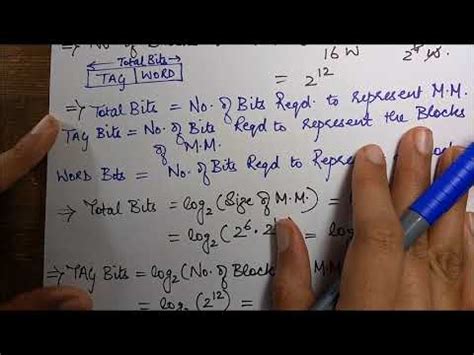 ⇒ No. of Blocks
16 W
= 2^12
Total Bits
TAG | WORD
⇒ Total Bits = No. of Bits Reqd. to represent M.M.
TAG Bits = No. of Bits Reqd to represent the Blocks
of M.M.
WORD Bits = No. of Bits Reqd to Represent
⇒ Total Bits = log₂(Size of M.M.) =
= log₂(2^6 · 2 =
⇒ TAG Bits = log₂(No. of Block M.M.
= log₂(2^12) =